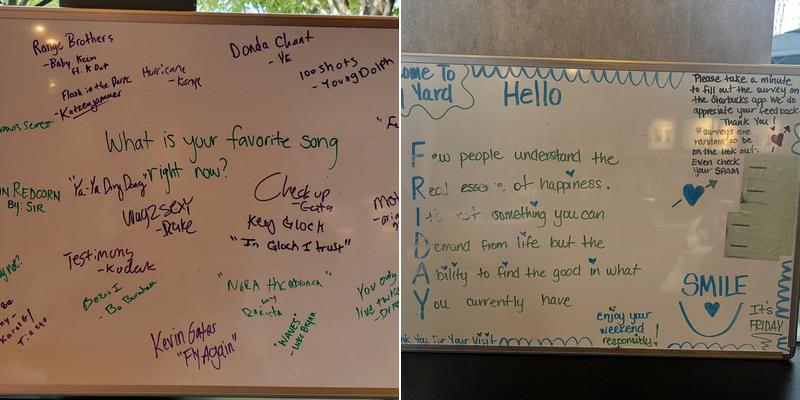 Range Brothers
- Baby Keem
ft. K Dot
Donda Chant
- YE
Hurricane
- Kanye
100 shots
- Young Dolph
Flash in the Dark
- Katzenjammer
Travis Scott
What is your favorite song
right now?
"Ya-Ya Ding Dong"
REDCORN
By: SIR
Way 2 Sexy
- Drake
Check up
Key Glock
"In Glock I trust"
Testimony
- Kodak
Bezos I
- Bo Burnham
by
You only
live twice
"WAVES"
- Luke Bryan
Kevin Gates
"Fly Again"
Tiesto
ome To
Yard
Hello
Please take a minute
to fill out the survey on
the Starbucks app. We do
appreciate your feedback.
Thank You!
*surveys are
random so be
on the look out.
Even check
your SPAM
Few people understand the
Real essence of happiness.
It's not something you can
Demand from life but the
Ability to find the good in what
You currently have
SMILE
enjoy your
weekend
responsibly!
It's
FRIDAY
nk You For Your Visit